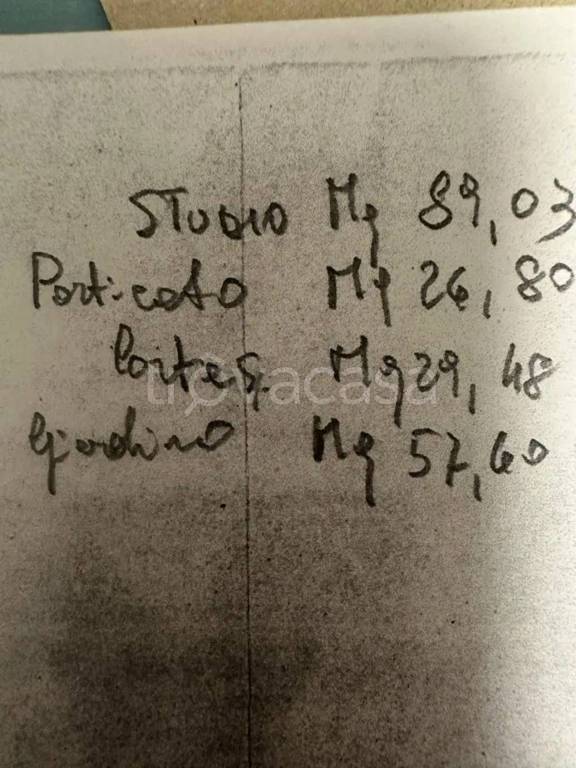 STUDIO Mq 89,03
Porticato Mq 26,80
Corte Mq 29,48
Giardino Mq 57,60
trovacasa